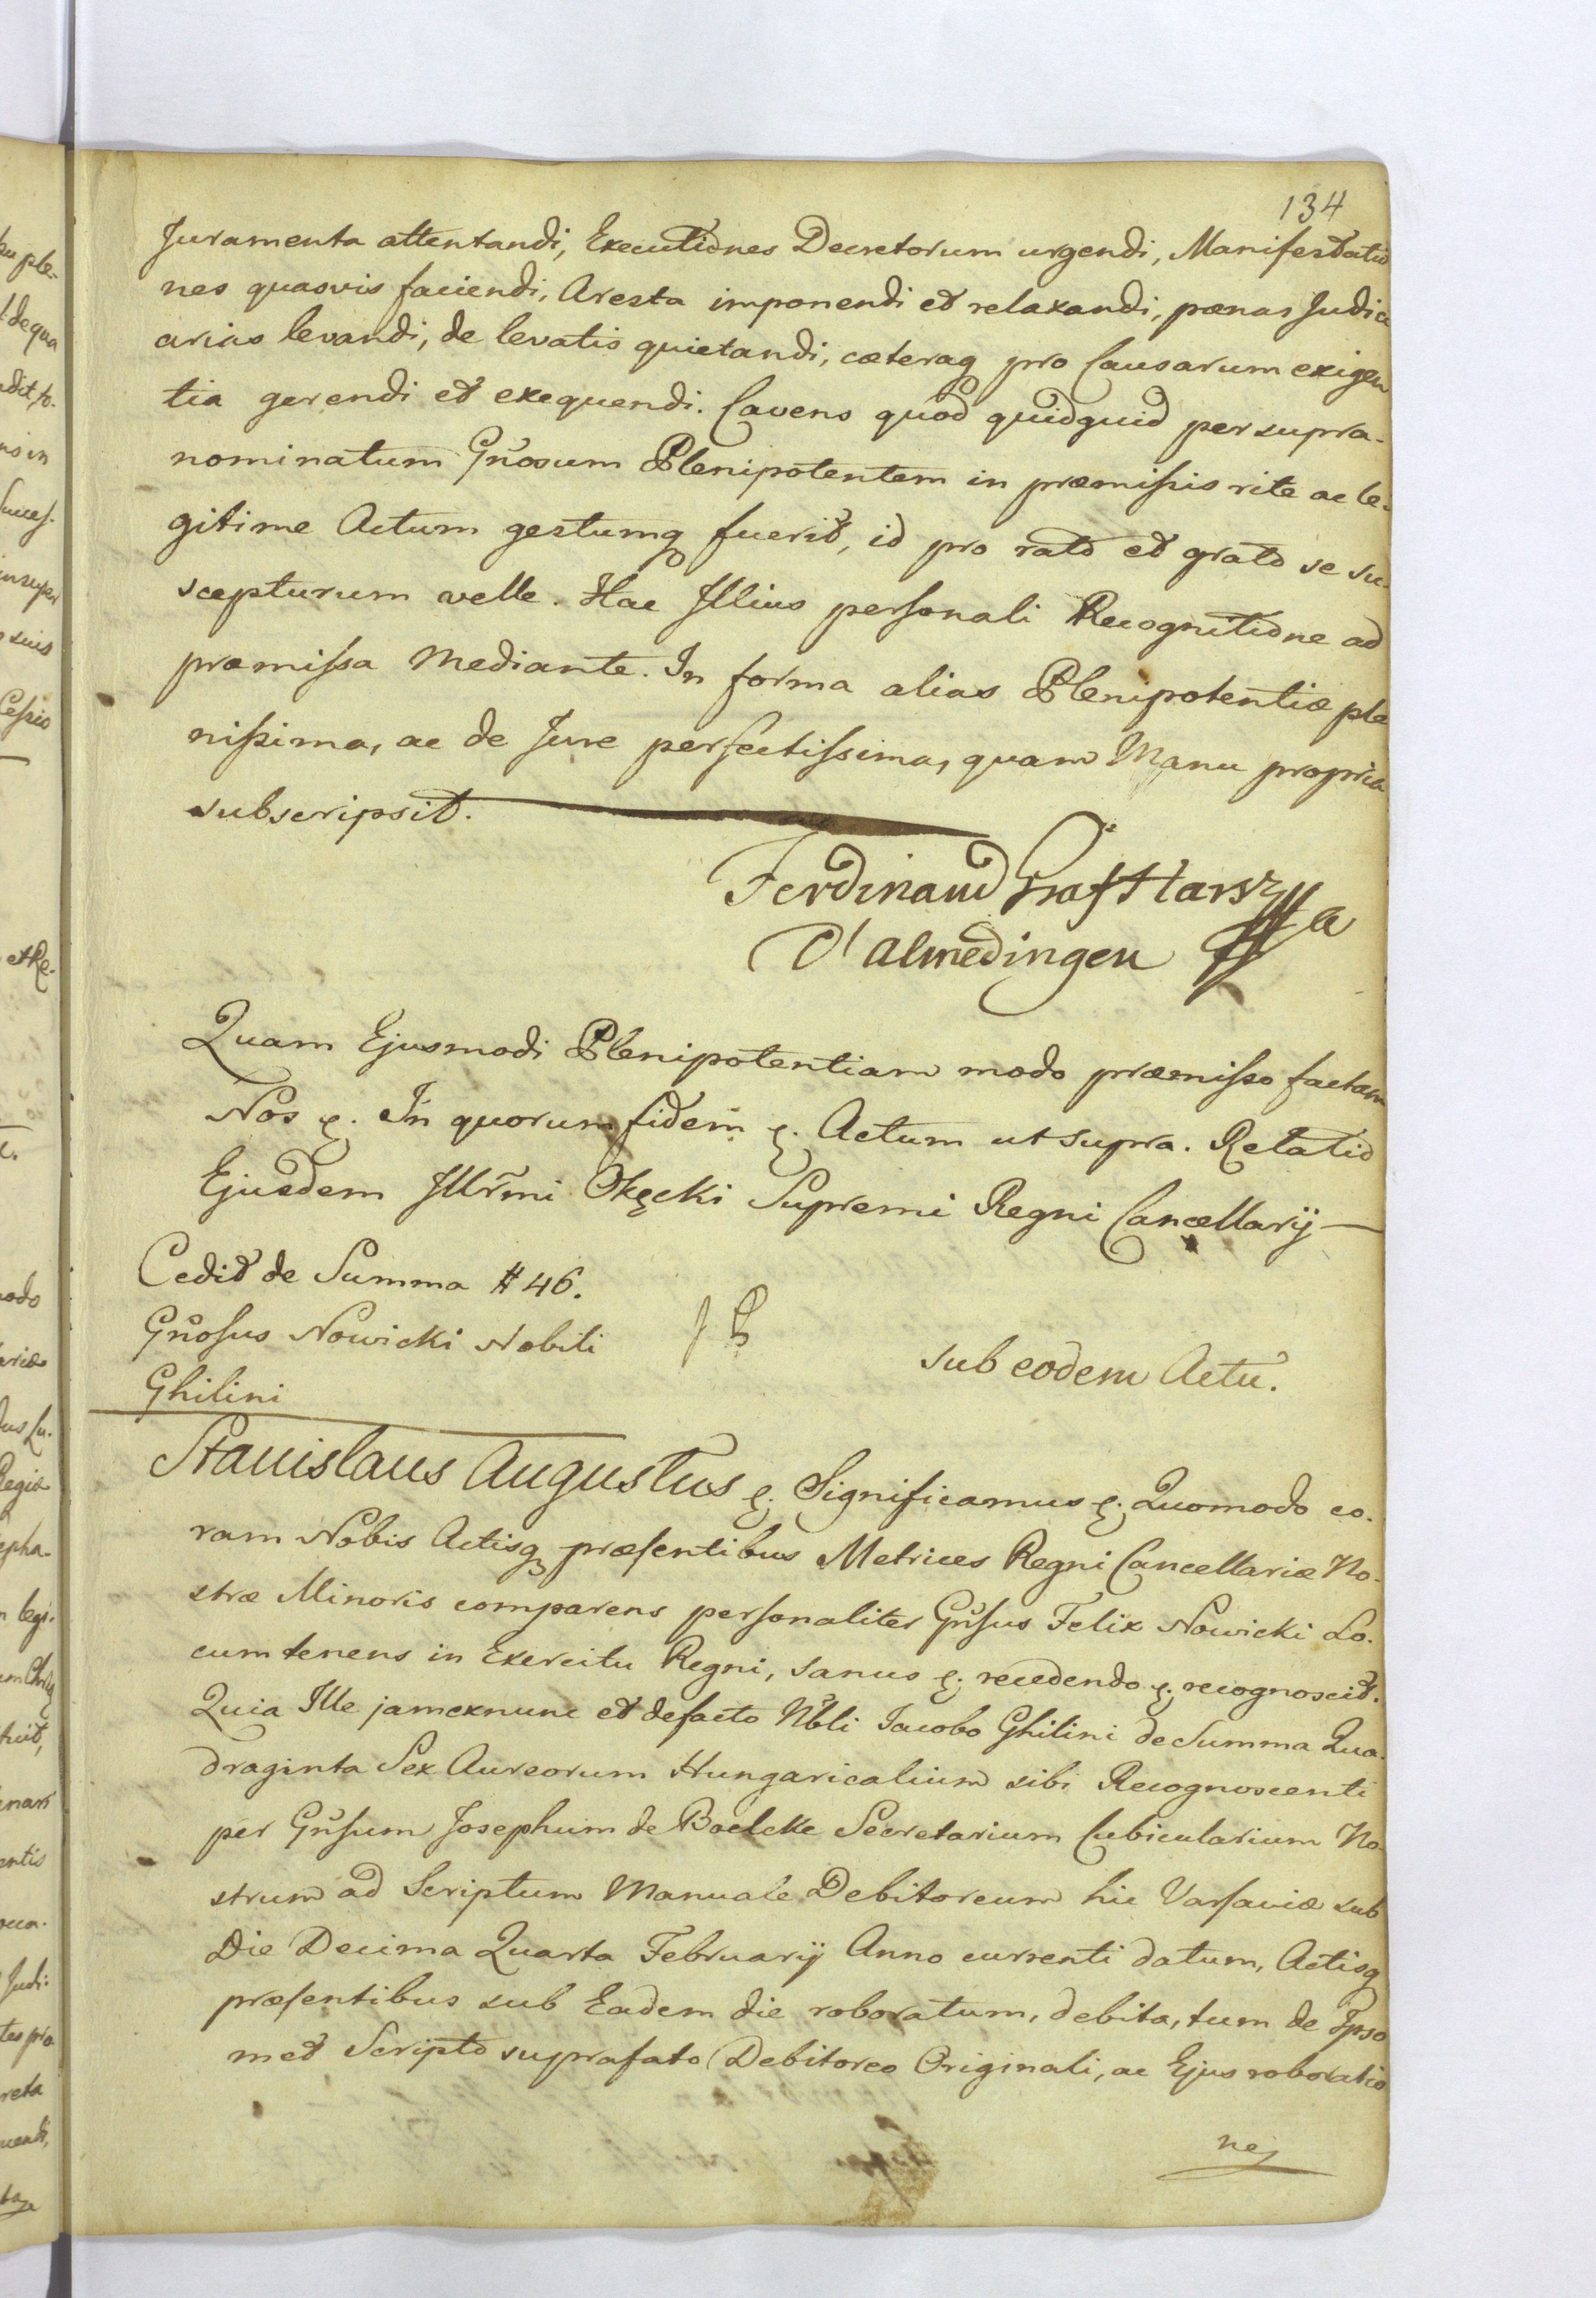 134
Juramenta attentandi, Executiones Decretorum urgendi, Manifestatio
nes quasvis faciendi, Aresta imponendi et relaxandi, pœnas Judici
arias levandi, de levatis quietandi, cæteraq pro Causarum exigen
tia gerendi et exequendi. Cavens quod quidquid per supra-
nominatum Gñosum Plenipotentem in præmissis rite ac le-
gitime Actum gestumq fuerit, id pro rato et grato se su-
scepturum velle. Hac Illius personali Recognitione ad
præmissa mediante. In forma alias Plenipotentiæ ple
nissima, ac de Jure perfectissima, quam Manu propria
subscripsit.
Ferdinand Graf Harsz
d'almedingen
Quam Ejusmodi Plenipotentiam modo præmisso factam
Nos &. In quorum fidem &. Actum ut supra. Relatio
Ejusdem Illr̃mi Okęcki Supremi Regni Cancellarij —
Cedit de Summa # 46.
Gñosus Nowicki Nobili
Ghilini
sub eodem Actu.
Stanislaus Augustus &. Significamus &. Quomodo co-
ram Nobis Actisq præsentibus Metrices Regni Cancellariæ No-
stræ Minoris comparens personaliter Gñsus Felix Nowicki Lo-
cumtenens in Exercitu Regni, sanus &. recedendo &. recognoscit.
Quia Ille jamexnunc et defacto Nbli Iacobo Ghilini de Summa Qua-
draginta Sex Aureorum Hungaricalium sibi Recognoscenti
per Gñsum Josephum de Boelcke Secretarium Cubicularium No-
strum ad Scriptum Manuale Debitoreum hic Varsaviæ sub
Die Decima Quarta Februarij Anno currenti datum, Actisq
præsentibus sub Eadem die roboratum, debita, tum de Ipso
met Scripto suprafato Debitoreo Originali, ac Ejus roboratio
nej